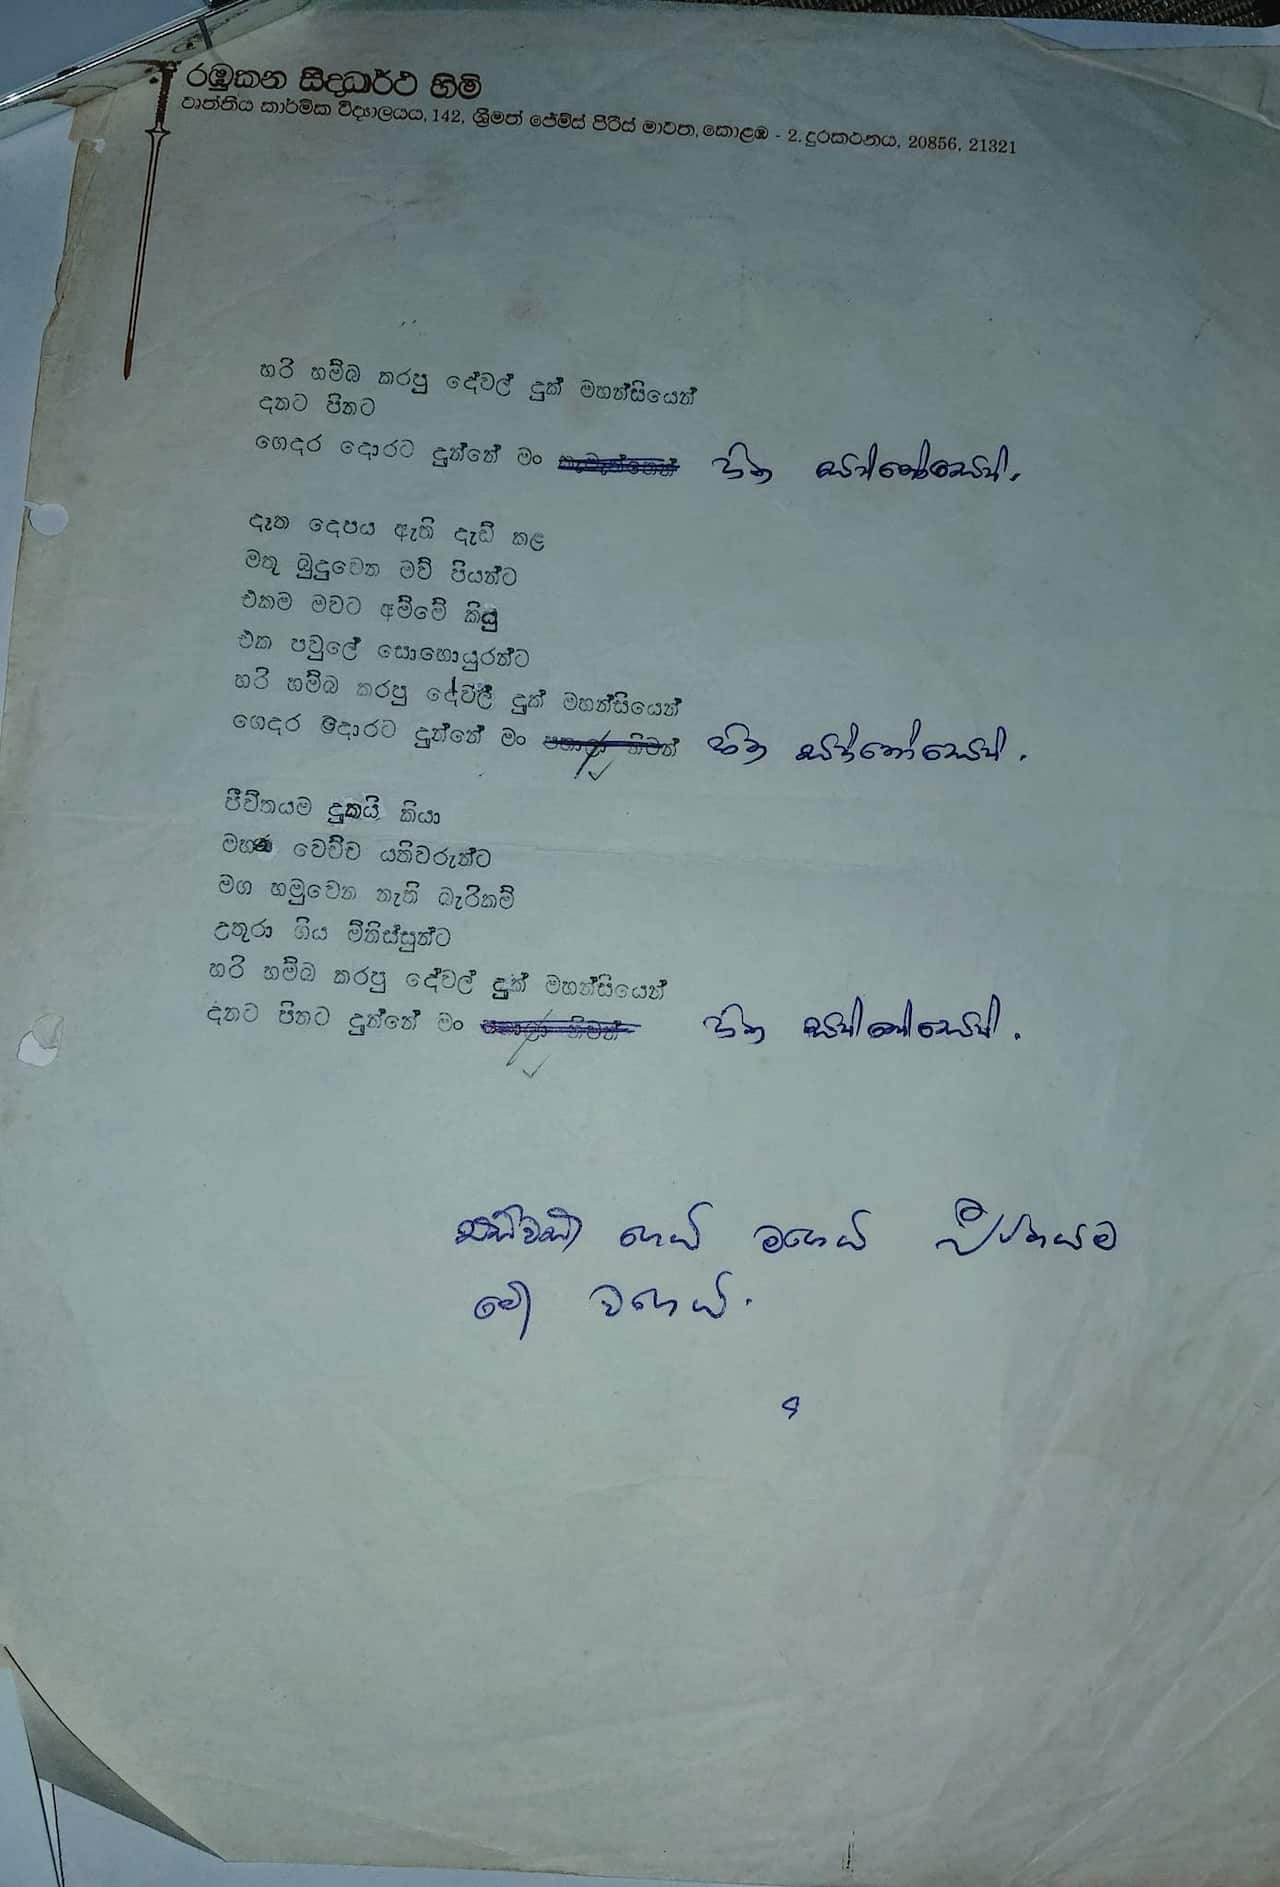 රඹුකන සිද්ධාර්ථ හිමි
වෘත්තීය කාර්මික විද්‍යාලයය, 142, ශ්‍රීමත් ජේම්ස් පීරිස් මාවත, කොළඹ - 2. දුරකථනය, 20856, 21321
හරි හම්බ කරපු දේවල් දුක් මහන්සියෙන්
දනට පිනට
ගෙදර දොරට දුන්නේ මං හිත සන්තෝසෙන්.
දෑත දෙපය ඇති දැඩි කළ
මතු බුදුවෙන මව් පියන්ට
එකම මවට අම්මේ කියු
එක පවුලේ සොහොයුරන්ට
හරි හම්බ කරපු දේවල් දුක් මහන්සියෙන්
ගෙදර දොරට දුන්නේ මං හිත සන්තෝසෙන්.
ජීවිතයම දුකයි කියා
මහණ වෙච්ච යතිවරුන්ට
මග හමුවෙන නැති බැරිකම්
උතුරා ගිය මිනිස්සුන්ට
හරි හම්බ කරපු දේවල් දුක් මහන්සියෙන්
දනට පිනට දුන්නේ මං හිත සන්තෝසෙන්.
ගෙයි මගෙයි ජීවිතයම
මේ වගෙයි.